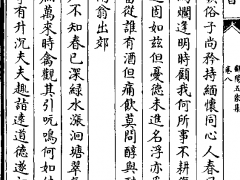 俗子尚矜持緬懷同心人春
爛逢明時顧我何所事不耕
之固如茲但憂德未進名浮亦
當從誰有酒但痛飲莫問醇與
翁出郊
不知春已深綠水漲迴塘翠
萬來時禽觀其引吭鳴何如
有升沉夫夫趣詣遠道德遂
卷八